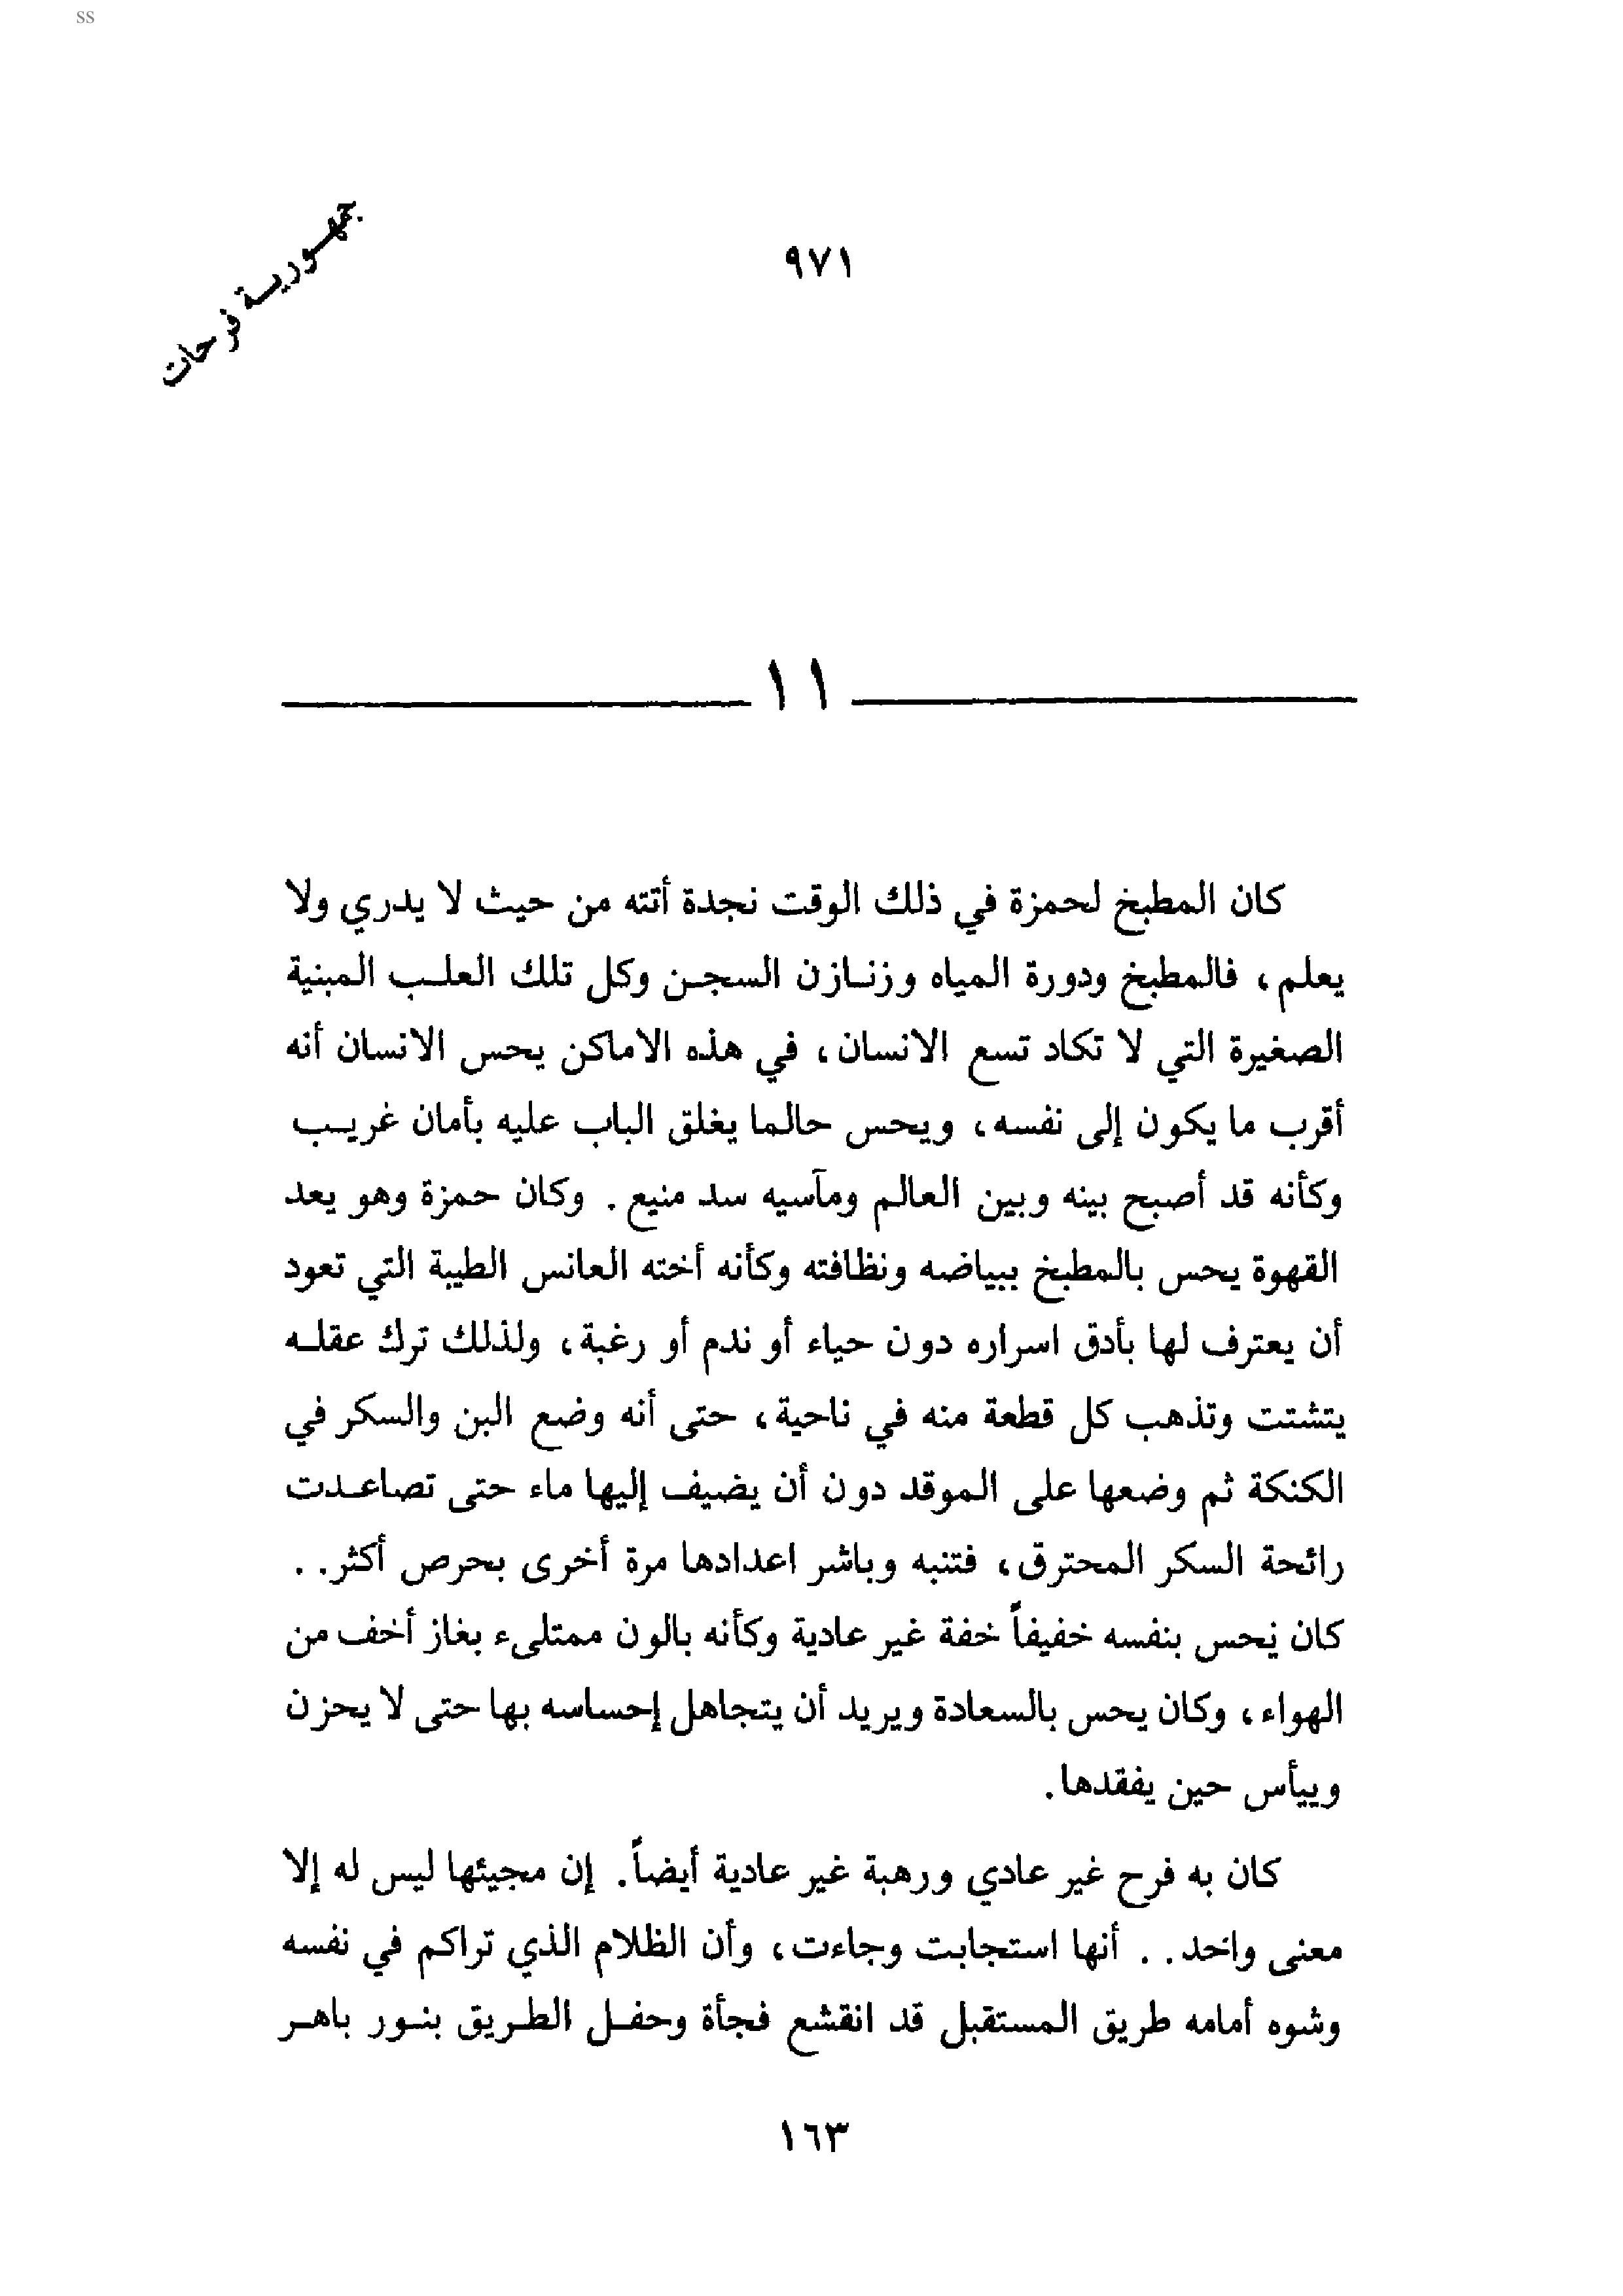 ss
جمهورية فرحات
٩٧١
١١
كان المطبخ لحمزة في ذلك الوقت نجدة أتته من حيث لا يدري ولا
يعلم، فالمطبخ ودورة المياه وزنازن السجن وكل تلك العلب المبنية
الصغيرة التي لا تكاد تسع الانسان، في هذه الاماكن يحس الانسان أنه
أقرب ما يكون إلى نفسه، ويحس حالما يغلق الباب عليه بأمان غريب
وكأنه قد أصبح بينه وبين العالم ومآسيه سد منيع. وكان حمزة وهو يعد
القهوة يحس بالمطبخ ببياضه ونظافته وكأنه أخته العانس الطيبة التي تعود
أن يعترف لها بأدق اسراره دون حياء أو ندم أو رغبة، ولذلك ترك عقله
يتشتت وتذهب كل قطعة منه في ناحية، حتى أنه وضع البن والسكر في
الكنكة ثم وضعها على الموقد دون أن يضيف إليها ماء حتى تصاعدت
رائحة السكر المحترق، فتنبه وباشر اعدادها مرة أخرى بحرص أكثر. .
كان يحس بنفسه خفيفاً خفة غير عادية وكأنه بالون ممتلىء بغاز أخف من
الهواء، وكان يحس بالسعادة ويريد أن يتجاهل إحساسه بها حتى لا يحزن
وييأس حين يفقدها.
كان به فرح غير عادي ورهبة غير عادية أيضاً. إن مجيئها ليس له إلا
معنى واحد. . أنها استجابت وجاءت، وأن الظلام الذي تراكم في نفسه
وشوه أمامه طريق المستقبل قد انقشع فجأة وحفل الطريق بنور باهر
١٦٣